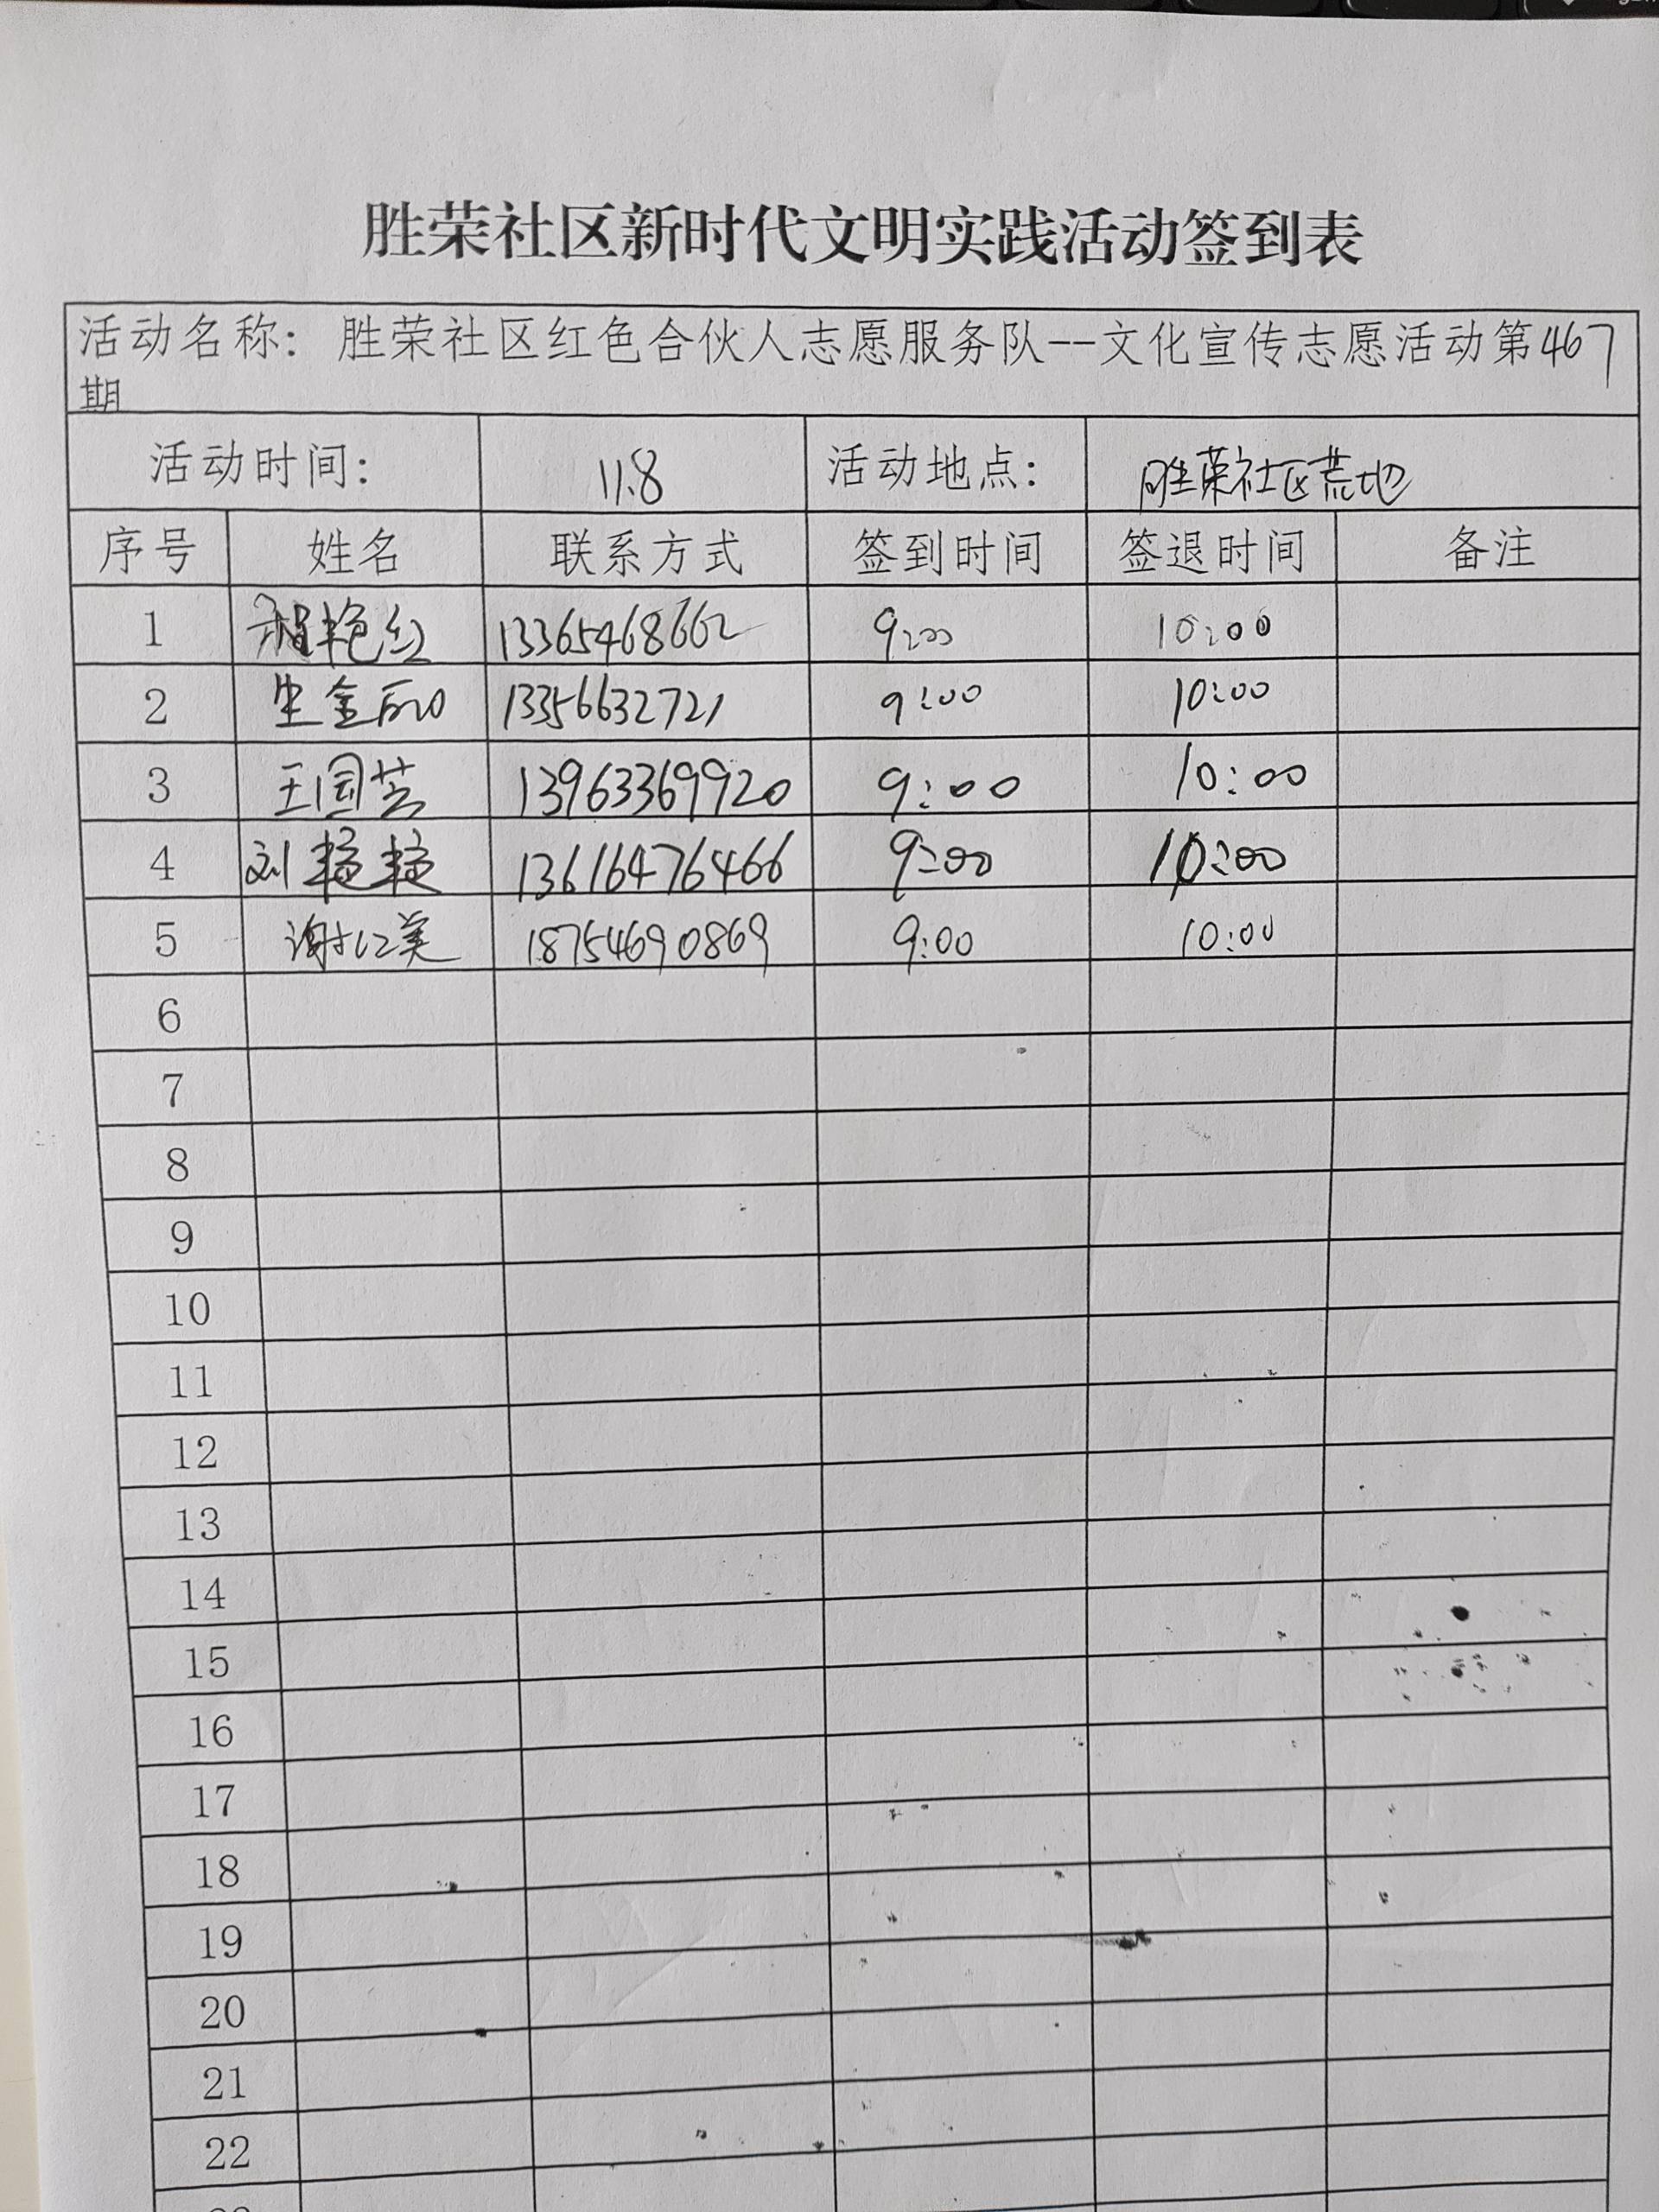 胜荣社区新时代文明实践活动签到表
活动名称：胜荣社区红色合伙人志愿服务队--文化宣传志愿活动第467
期
活动时间： 11.8 活动地点： 胜荣社区荒地
序号 姓名 联系方式 签到时间 签退时间 备注
1 程艳红 13365468662 9:00 10:00
2 生金 13356632721 9:00 10:00
3 王国芸 13963369920 9:00 10:00
4 刘艳艳 13616476466 9:00 10:00
5 谢红美 18754690869 9:00 10:00
6
7
8
9
10
11
12
13
14
15
16
17
18
19
20
21
22